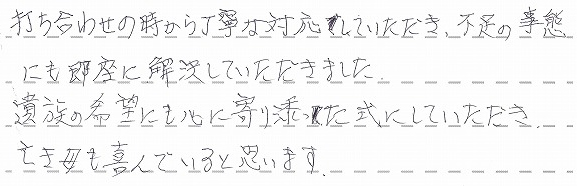 打ち合わせの時から丁寧な対応していただき、不足の事態
にも即座に解決していただきました。
遺族の希望にも心に寄り添った式にしていただき、
亡き母も喜んでいると思います。